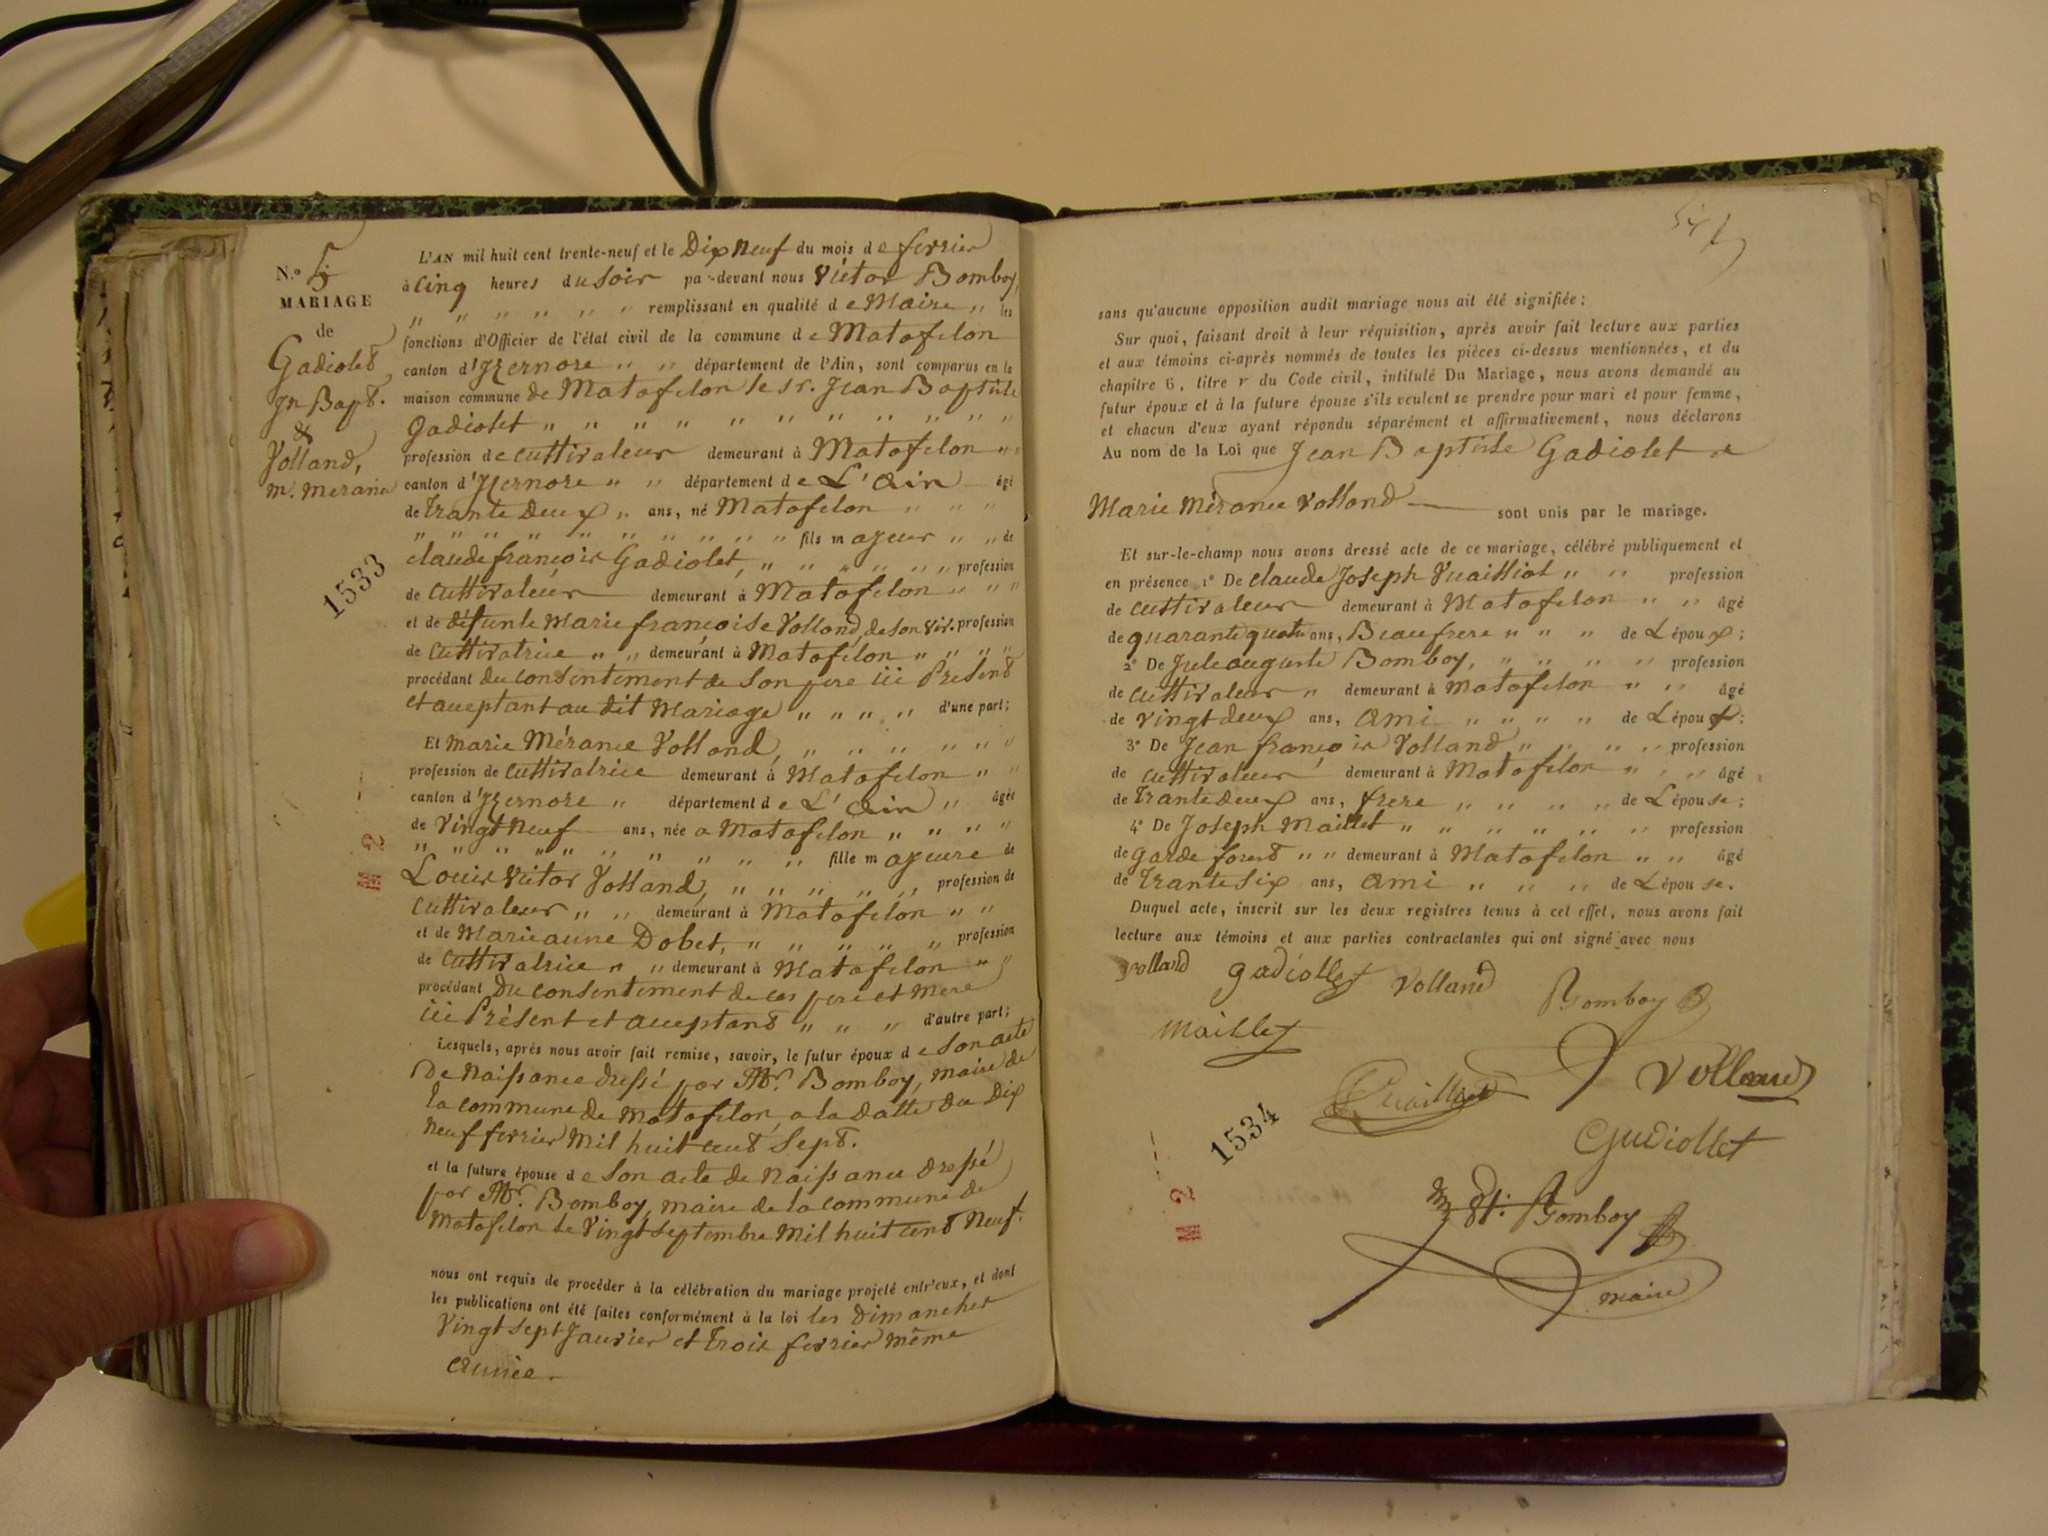 N.o 5
MARIAGE
de
Gadiolet
Jn Bapt.
&
Volland,
m. meranie
1533
L'AN mil huit cent trente-neuf et le Dix neuf du mois de fevrier
à Cinq heures du Soir pa-devant nous Victor Bomboy,
" " " " " " remplissant en qualité de Maire " les
fonctions d'Officier de l'état civil de la commune de Matafelon
canton d'Izernore " " département de l'Ain, sont comparus en la
maison commune de Matafelon le sr. Jean Baptiste
Gadiolet " " " " " " " " " "
profession de Cultivateur demeurant à Matafelon "
canton d'Izernore " " département de L'Ain âgé
de trante Deux " ans, né Matafelon " " "
" " " " " " " " " fils majeur " " de
claude françois Gadiolet, " " " " " " profession
de Cultivateur demeurant à Matafelon " " "
et de défunte Marie françoise Volland de son viv. profession
de Cultivatrice " " demeurant à Matafelon " " " "
procédant du consentement de Son pere ici Present
et aceptant au dit Mariage " " " " d'une part;
Et Marie Méranie Volland, " " " " " "
profession de Cultivatrice demeurant à Matafelon " "
canton d'Izernore " département de L'Ain " âgée
de Vingt Neuf ans, née a Matafelon " " " "
" " " " " " " " " " fille majeure de
Louis Victor Volland, " " " " " profession de
Cultivateur " " demeurant à Matafelon " "
et de Marie anne Dobet, " " " " " profession
de Cultivatrice " " demeurant à Matafelon " "
procédant Du consentement de ces pere et mere
ici Présent et aceptant " " " d'autre part;
Lesquels, après nous avoir fait remise, savoir, le futur époux de Son acte
De Naissance dressé par Mr. Bomboy, maire de
la commune de Matafelon, a la Datte du Dix
Neuf fevrier Mil huit cent Sept.
et la future épouse de Son acte de Naissance Dressé
par Mr. Bomboy, maire de la commune de
Matafelon le Vingt Septembre Mil huit cent Neuf.
nous ont requis de procéder à la célébration du mariage projeté entr'eux, et dont
les publications ont été faites conformément à la loi les Dimanches
Vingt Sept Janvier et Trois fevrier même
année.
sans qu'aucune opposition audit mariage nous ait été signifiée;
Sur quoi, faisant droit à leur réquisition, après avoir fait lecture aux parties
et aux témoins ci-après nommés de toutes les pièces ci-dessus mentionnées, et du
chapitre 6, titre v du Code civil, intitulé Du Mariage, nous avons demandé au
futur époux et à la future épouse s'ils veulent se prendre pour mari et pour femme,
et chacun d'eux ayant répondu séparément et affirmativement, nous déclarons
Au nom de la Loi que Jean Baptiste Gadiolet et
Marie Méranie Volland sont unis par le mariage.
Et sur-le-champ nous avons dressé acte de ce mariage, célébré publiquement et
en présence 1° De claude Joseph Vuailliot " " profession
de Cultivateur demeurant à Matafelon " " âgé
de quarante quatre ans, Beau frere " " " de L'époux;
2° De Jule auguste Bomboy, " " " " profession
de Cultivateur " demeurant à Matafelon " " âgé
de Vingt deux ans, Ami " " " " de L'époux;
3° De Jean françois Volland " " " " profession
de Cultivateur demeurant à Matafelon " " " âgé
de Trante deux ans, frere " " " " de L'épouse;
4° De Joseph Maillet " " " " " " profession
de Garde forest " " demeurant à Matafelon " " âgé
de Trante Six ans, Ami " " " de L'épouse.
Duquel acte, inscrit sur les deux registres tenus à cet effet, nous avons fait
lecture aux témoins et aux parties contractantes qui ont signé avec nous
volland gadiollet Volland Bomboy
Maillet
Volland
1534
Gudiollet
Bomboy
maire